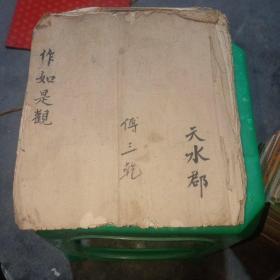 天水郡
傅三乾
作如是觀